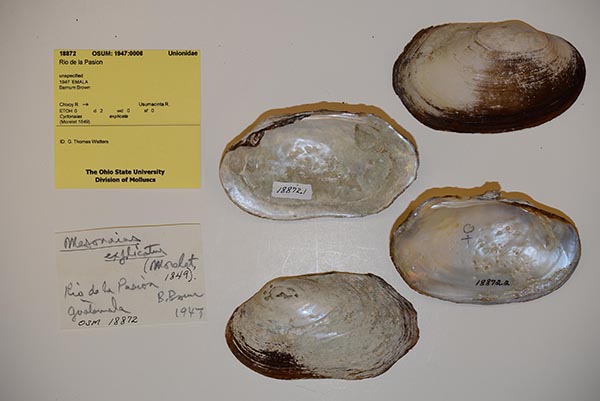 18872 OSUM: 1947:0006 Unionidae
Rio de la Pasion
unspecified
1947 EMALA
Barnum Brown
Chixoy R. → Usumacinta R.
ETOH 0 d 2 wd 0 sf 0
Cyrtonaias explicata
(Morelet 1849)
ID. G. Thomas Watters
The Ohio State University
Division of Molluscs
Mesonaias
explicatus
(Morelet,
1849).
Rio de la Pasion
B. Brown
Guatemala
1947
OSM 18872
18872.1
♀
18872.2